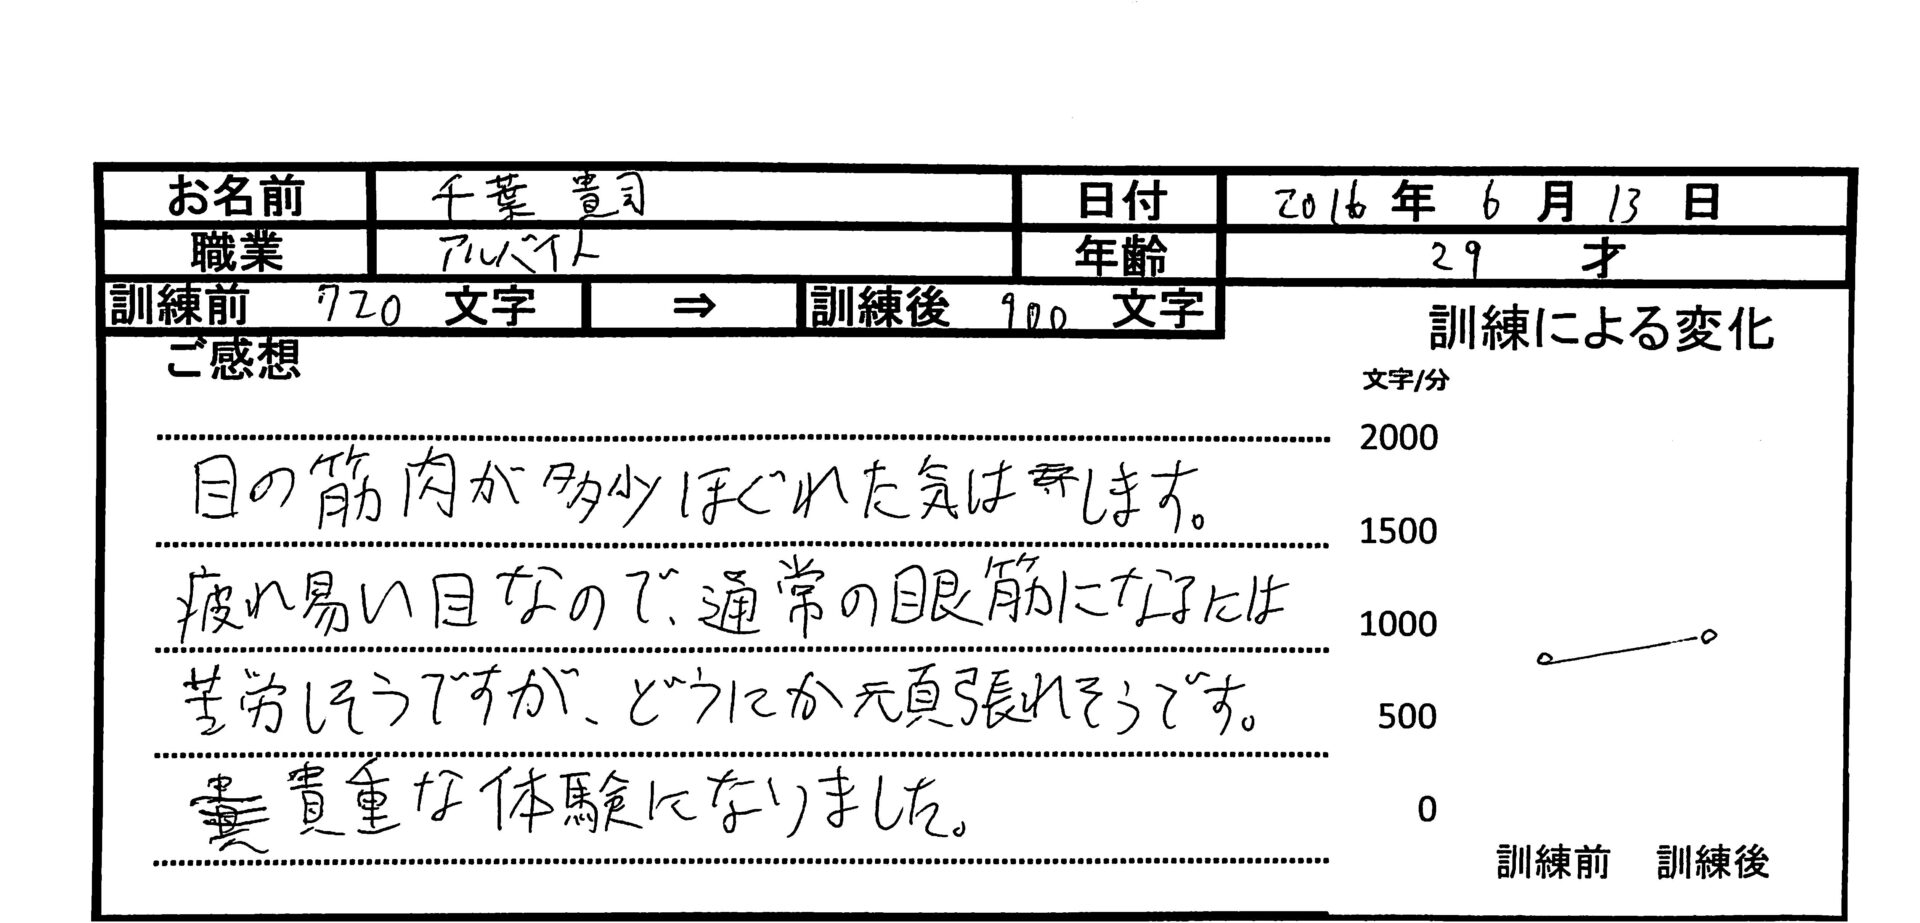 お名前 千葉 貴司 日付 2016年 6月 13日
職業 アルバイト 年齢 29 才
訓練前 720 文字 ⇒ 訓練後 900 文字
ご感想
目の筋肉が多少ほぐれた気はします。
疲れ易い目なので、通常の眼筋になるには
苦労しそうですが、どうにか頑張れそうです。
貴重な体験になりました。
訓練による変化
文字/分
2000
1500
1000
500
0
訓練前 訓練後